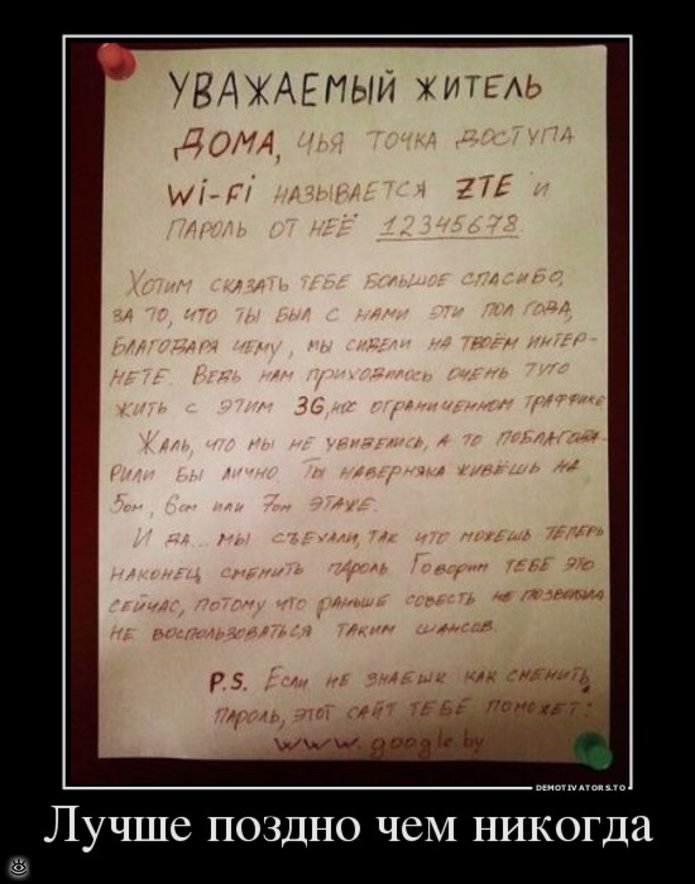 УВАЖАЕМЫЙ ЖИТЕЛЬ
ДОМА, ЧЬЯ ТОЧКА ДОСТУПА
Wi-Fi НАЗЫВАЕТСЯ ZTE И
ПАРОЛЬ ОТ НЕЁ 12345678.
ХОТИМ СКАЗАТЬ ТЕБЕ БОЛЬШОЕ СПАСИБО,
ЗА ТО, ЧТО ТЫ БЫЛ С НАМИ ЭТИ ПОЛ ГОДА,
БЛАГОДАРЯ ЧЕМУ, МЫ СИДЕЛИ НА ТВОЁМ ИНТЕР-
НЕТЕ. ВЕДЬ НАМ ПРИХОДИЛОСЬ ОЧЕНЬ ТУГО
ЖИТЬ С ЭТИМ 3G, ОГРАНИЧЕННОМ ТРАФФИКЕ
ЖАЛЬ, ЧТО МЫ НЕ УВИДЕЛИСЬ, А ТО ПОБЛАГОДА-
РИЛИ БЫ ЛИЧНО ТЫ НАВЕРНЯКА ЖИВЁШЬ НА
5ом, 6ом ИЛИ 7ом ЭТАЖЕ.
И ДА... МЫ СЪЕХАЛИ, ТАК ЧТО МОЖЕШЬ ТЕПЕРЬ
НАКОНЕЦ СМЕНИТЬ ПАРОЛЬ ГОВОРИМ ТЕБЕ ЭТО
СЕЙЧАС, ПОТОМУ ЧТО РАНЬШЕ СОВЕСТЬ НЕ ПОЗВОЛЯЛА
НЕ ВОСПОЛЬЗОВАТЬСЯ ТАКИМ ШАНСОМ.
P.S. ЕСЛИ НЕ ЗНАЕШЬ КАК СМЕНИТЬ
ПАРОЛЬ, ЭТОТ САЙТ ТЕБЕ ПОМОЖЕТ:
www.google.by
DEMOTIVATORS.TO
Лучше поздно чем никогда